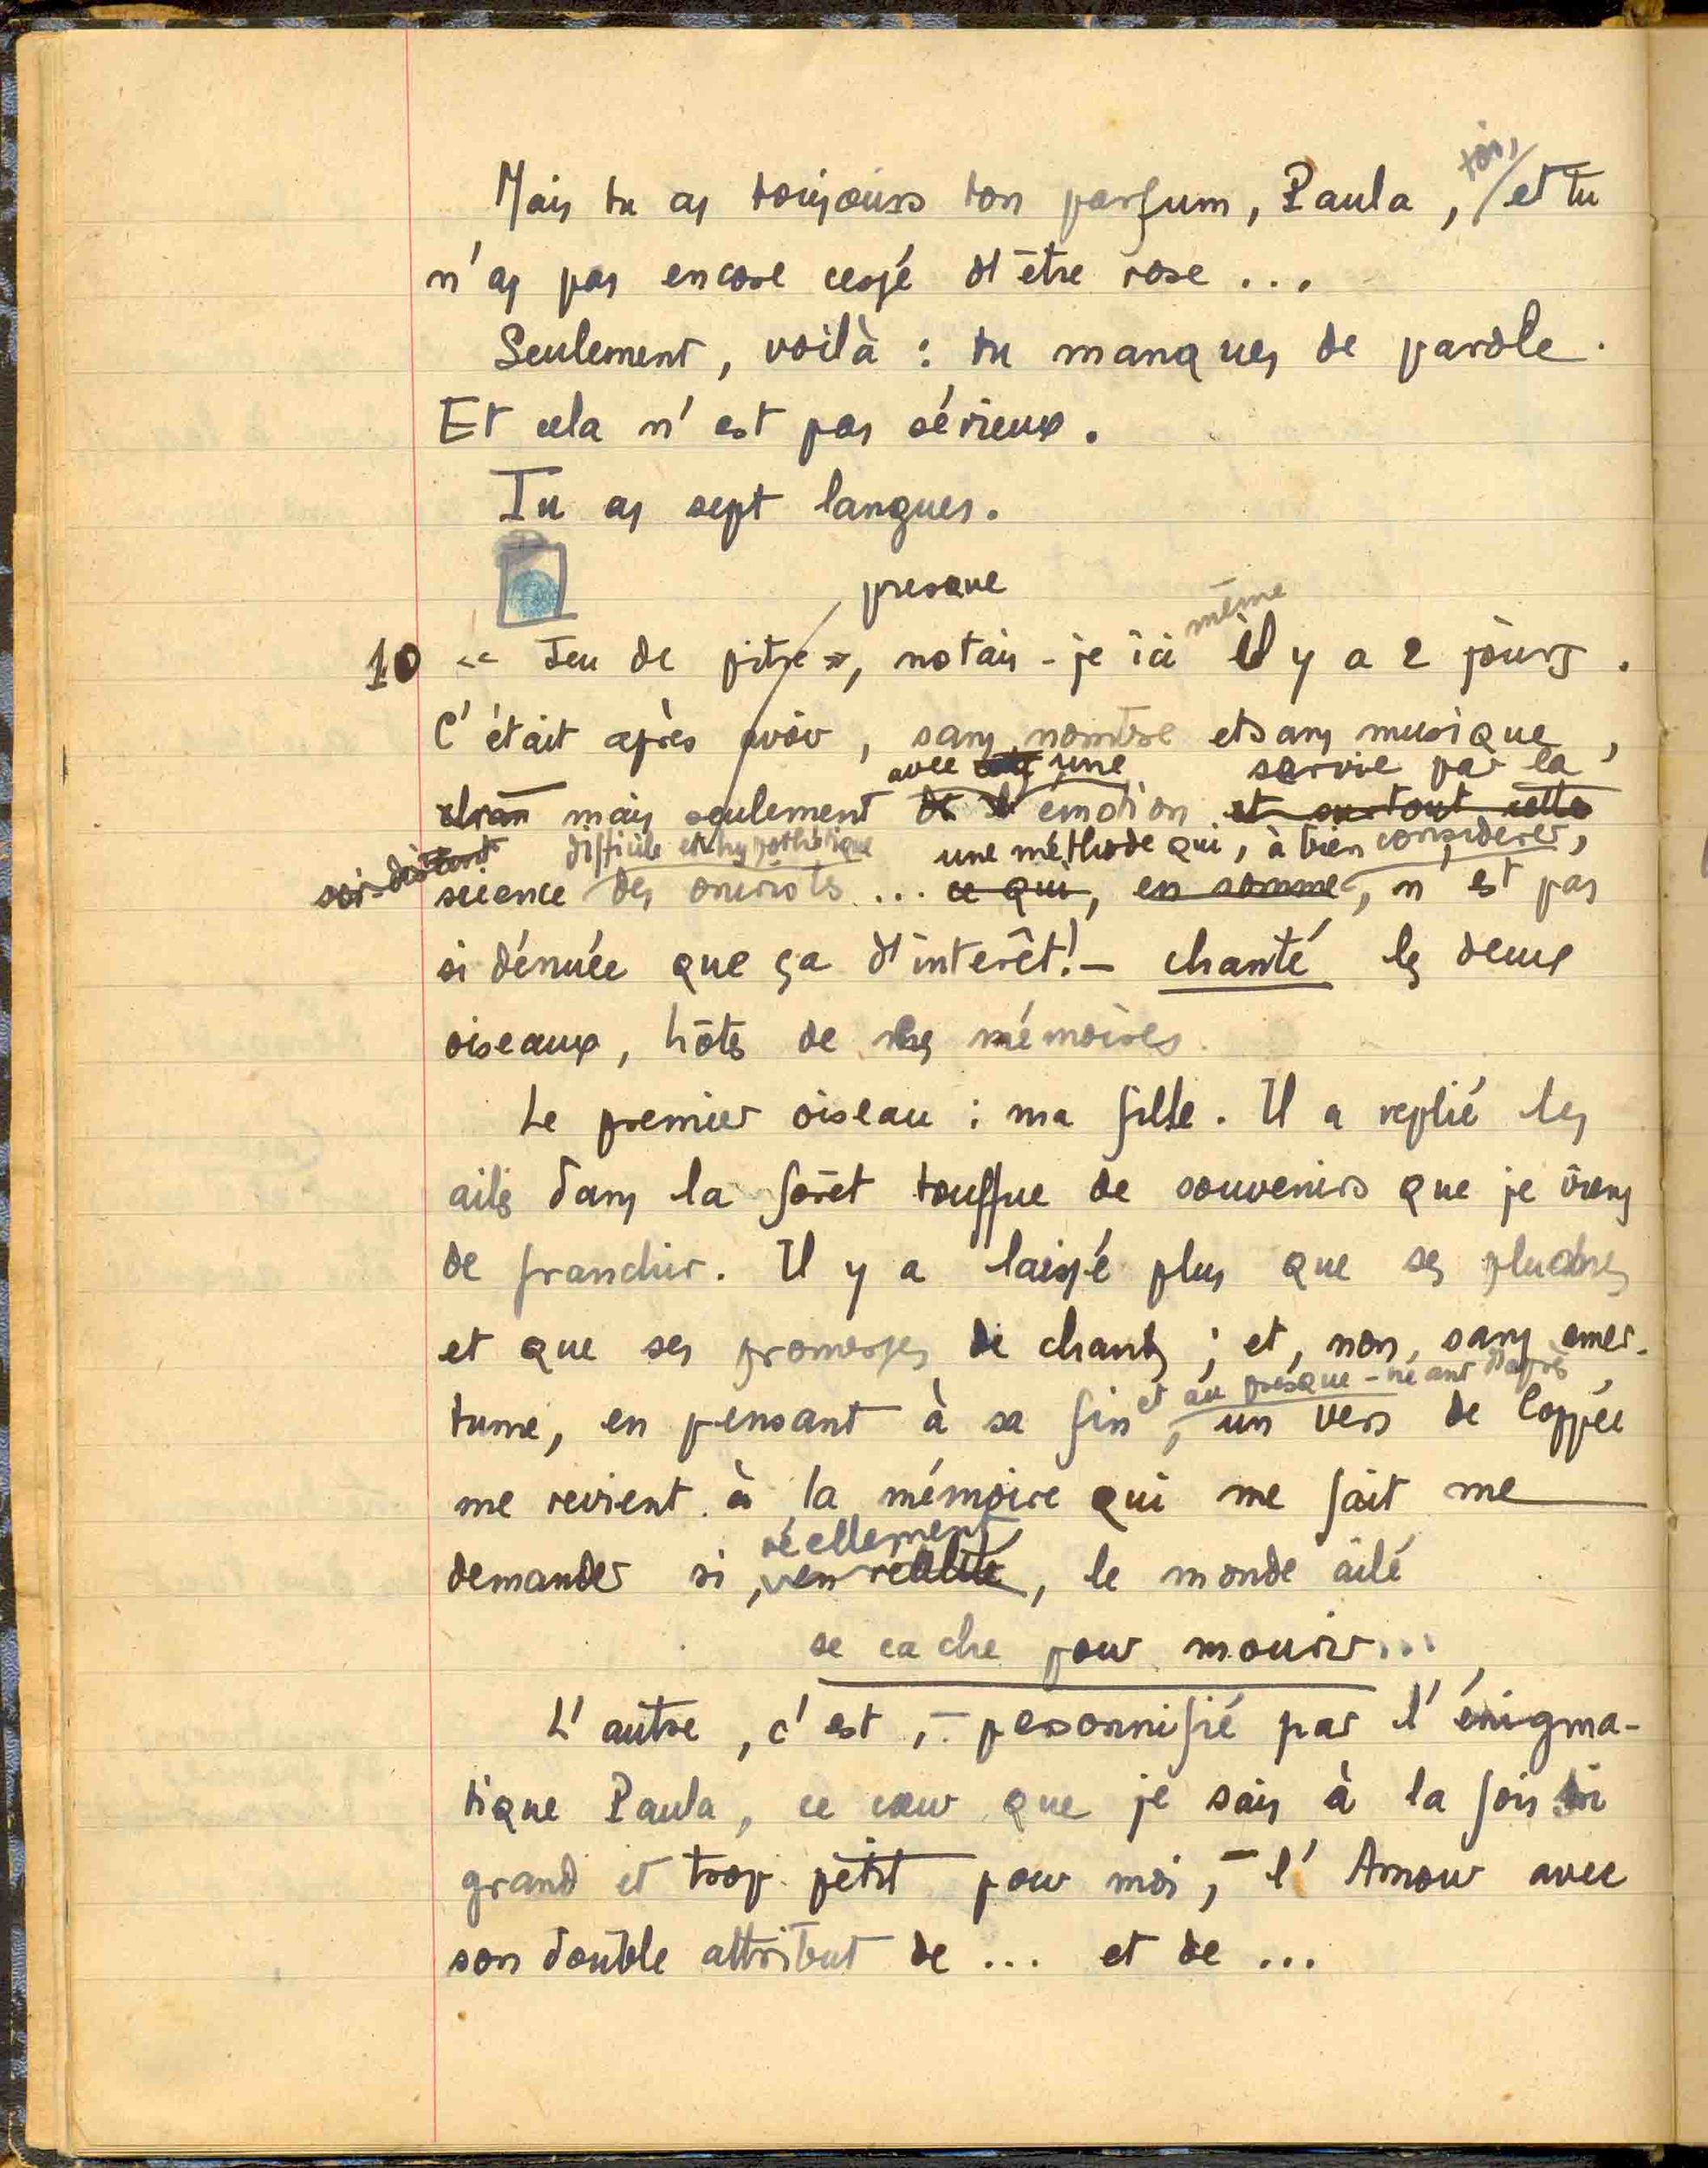 toi,
Mais tu as toujours ton parfum, Paula, et tu
n'as pas encore cessé d'être rose ...
Seulement, voilà : tu manques de parole.
Et cela n'est pas sérieux.
Tu as sept langues.
presque
même
10 « Jeu de pitre », notais-je ici il y a 2 jours.
C'était après avoir, sans nombre et sans musique,
avec une servie par la
mais seulement de l'émotion et surtout cette
difficile et hypothétique une méthode qui, à bien considérer,
soi-disant science des onirocrites ... ce qui, en somme, n'est pas
si dénuée que ça d'intérêt! – chanté les deux
oiseaux, hôtes de mes mémoires.
Le premier oiseau : ma fille. Il a replié les
ailes dans la forêt touffue de souvenirs que je viens
de franchir. Il y a laissé plus que ses plumes
et que ses promesses de chants ; et, non sans amer-
et au presque-néant d'après
tume, en pensant à sa fin, un vers de Coppée
me revient à la mémoire qui me fait me
réellement
demander si, en réalité, le monde ailé
se cache pour mourir...
L'autre, c'est, – personnifié par l'énigma-
tique Paula, ce cœur que je sais à la fois si
grand et trop petit pour moi, – l'Amour avec
son double attribut de ... et de ...